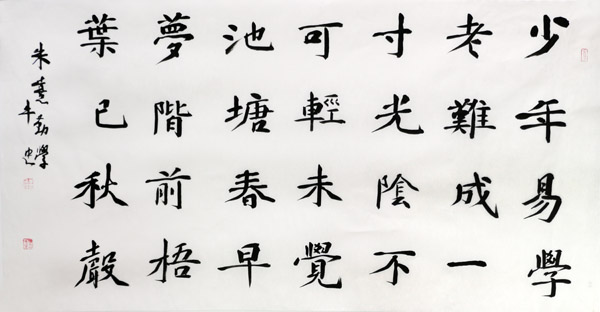 少年易學
老難成一
寸光陰不
可輕未覺
池塘春早
夢階前梧
葉已秋聲
朱熹勸學